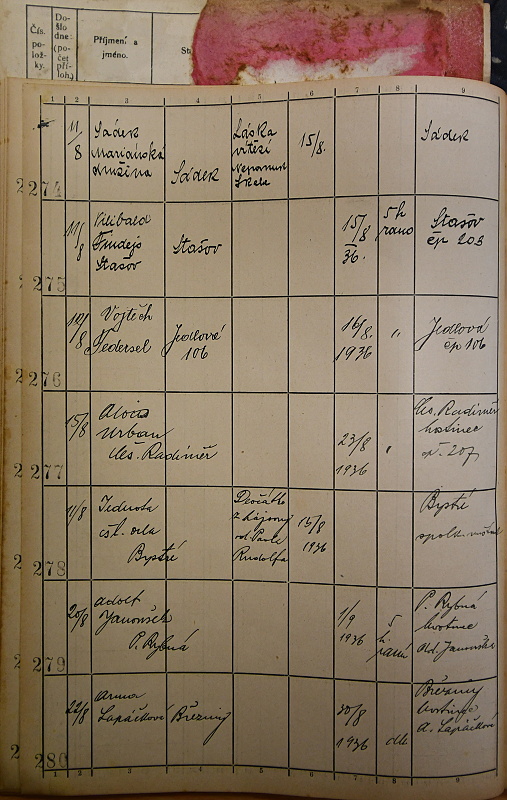 Čís.
po-
lož-
ky.
Do-
šlo
dne:
(po-
čet
pří-
loh.)
Příjmení a
jméno.
1 2 3 4 5 6 7 8 9
11/8
Sádek
Mariánská
družina
Sádek
Láska
vítězí
Nepomuk
Škola
15/8.
Sádek
274
11/8
Vilibald
Stašov
Stašov
15/8
36.
5 h
ráno
Stašov
čp 203
275
Vojtěch
Federsel
Jedlová
106
16/8.
1936
"
Jedlová
čp 106
276
15/8
Alois
Urban
čes. Radiměř
23/8
1936
"
čes. Radiměř
hostinec
čp. 207
277
11/8
Jednota
čsl. orla
Bystré
z hájovny
od Pavla
Rudolfa
15/8
1936
Bystré
278
20/8
Adolf
Janoušek
P. Rybná
1/9
1936
5
h.
ránu
P. Rybná
hostinec
Ad. Janouška
279
22/8
Anna
Lopáčková
Březiny
30/8
1936
dto
Březiny
hostinec
A. Lopáčkové
280
1 2 3 4 5 6 7 8 9